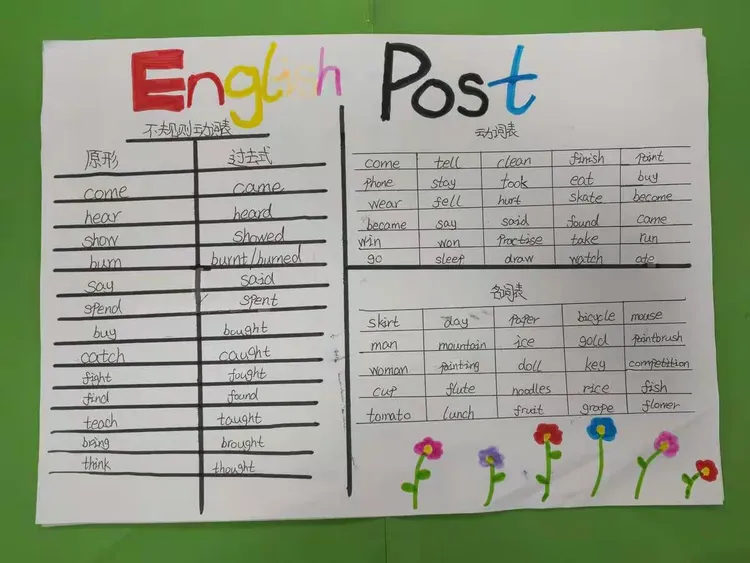 English Post
不规则动词表
原形 过去式
come came
hear heard
show showed
burn burnt/burned
say said
spend spent
buy bought
catch caught
fight fought
find found
teach taught
bring brought
think thought
动词表
come tell clean finish paint
phone stay took eat buy
wear fell hurt skate become
became say said found came
win won practise take run
go sleep draw watch ate
名词表
skirt day paper bicycle mouse
man mountain ice gold paintbrush
woman painting doll key competition
cup flute noodles rice fish
tomato lunch fruit grape flower